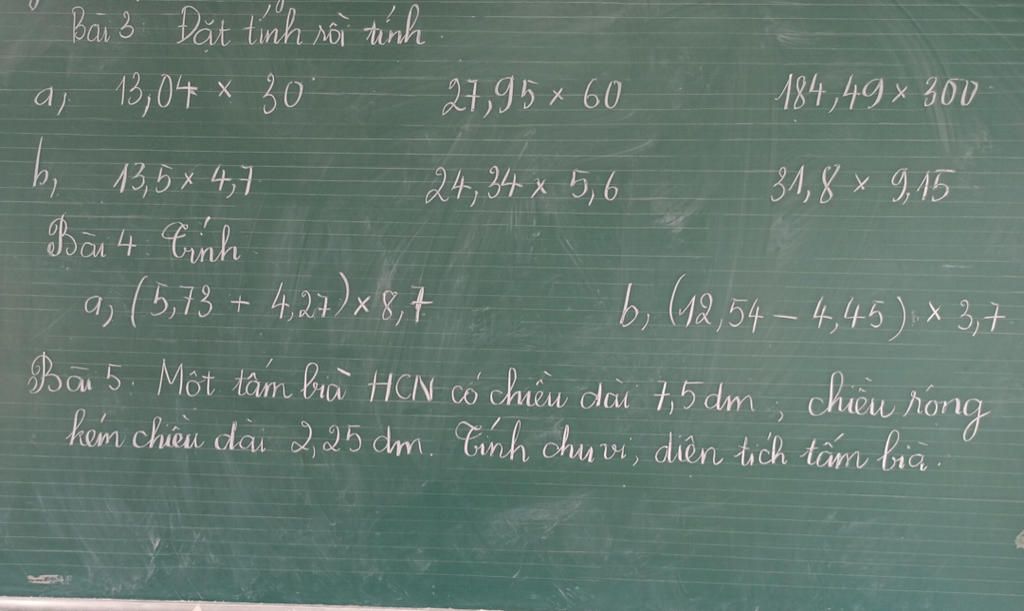 Bài 3 Đặt tính rồi tính.
a, 13,04 × 30 27,95 × 60 184,49 × 300
b, 13,5 × 4,7 24,34 × 5,6 31,8 × 9,15
Bài 4: Tính
a, (5,73 + 4,27) × 8,7 b, (12,54 - 4,45) × 3,7
Bài 5. Một tấm bìa HCN có chiều dài 7,5 dm, chiều rộng
kém chiều dài 2,25 dm. Tính chu vi, diện tích tấm bìa.